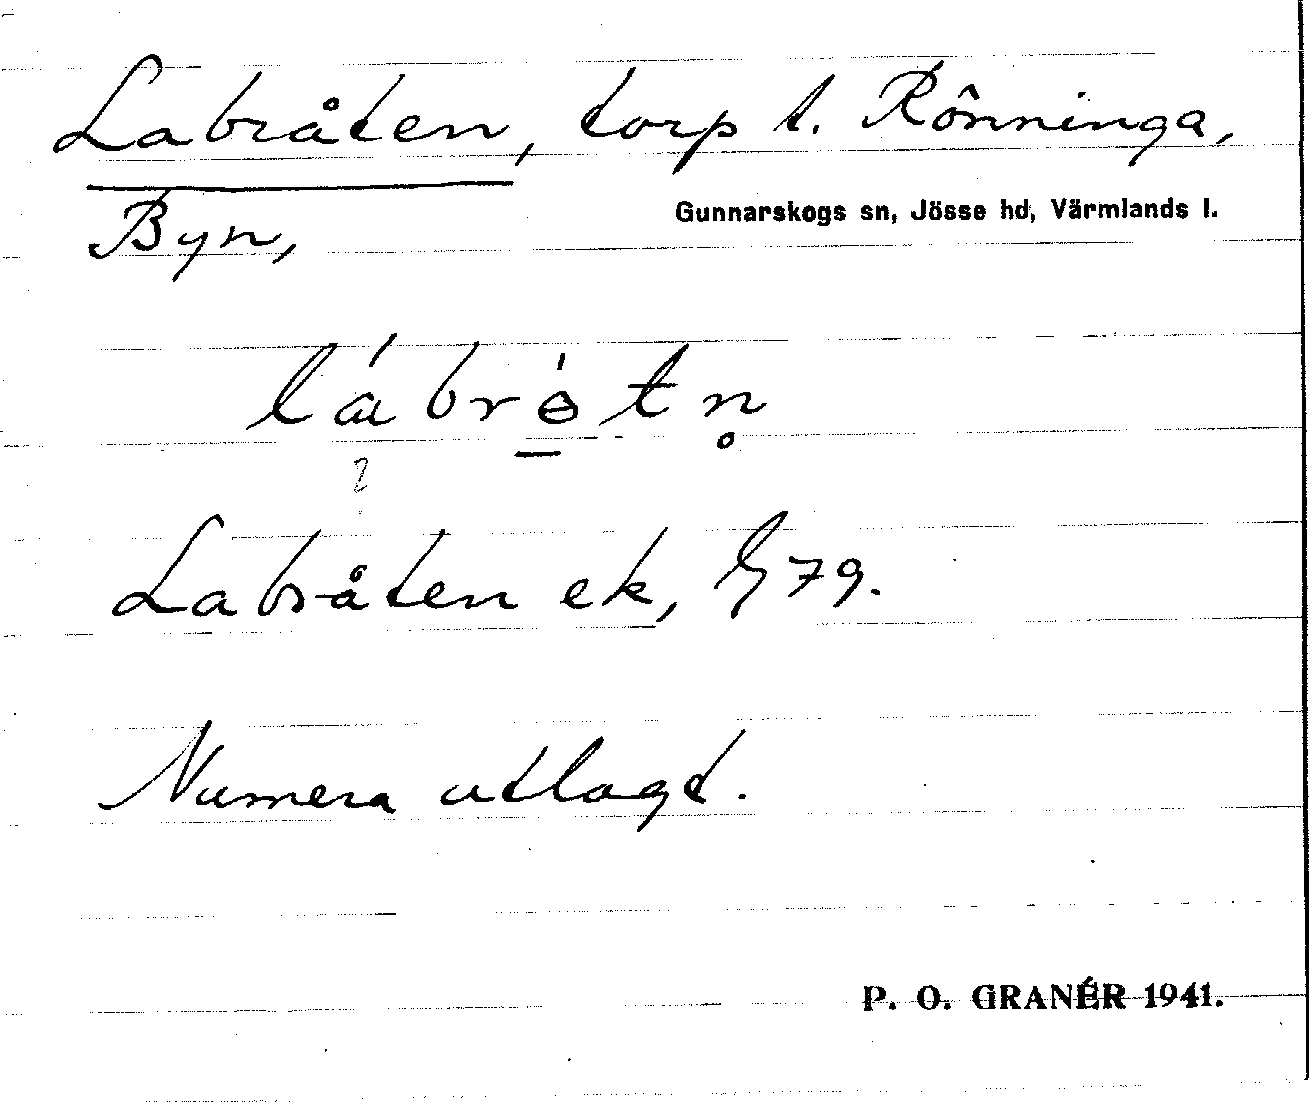 Labråten, torp t. Rönninga,
Byn,
Gunnarskogs sn, Jösse hd, Värmlands l.
lábrѳ́tn̥
?
Labråten ek, 79.
Numera utlagt.
P. O. GRANÉR 1941.